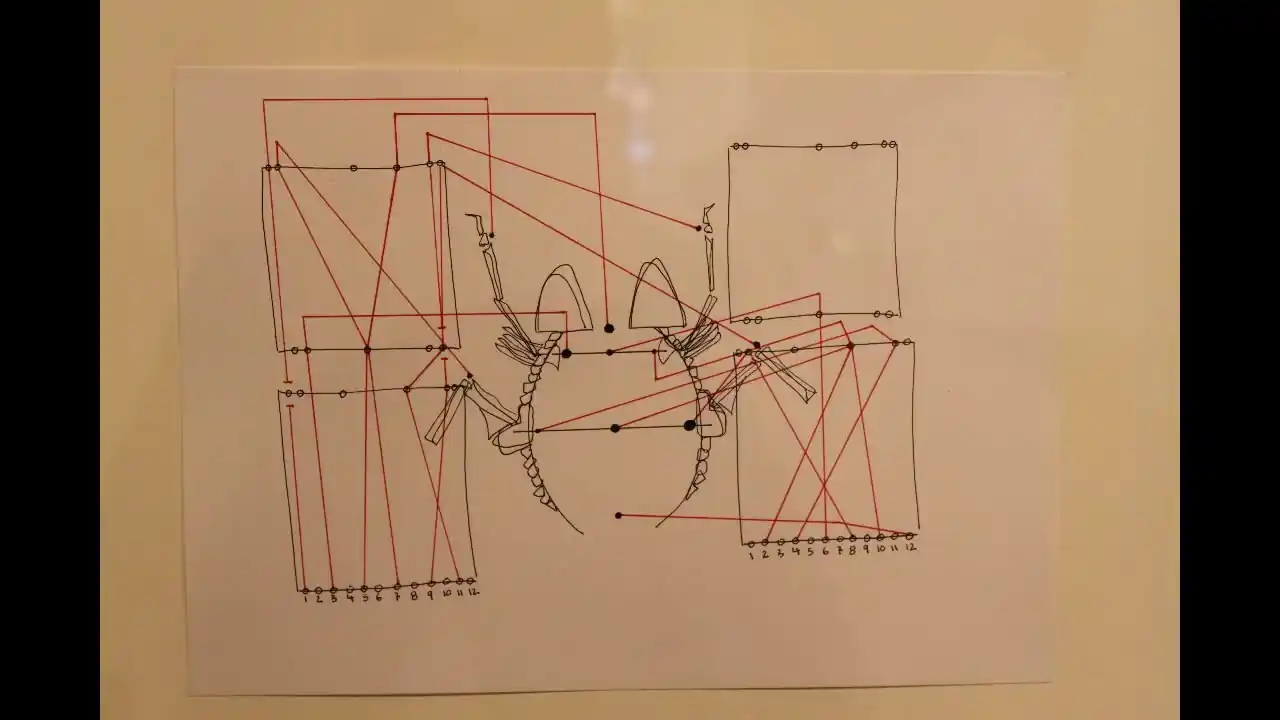 1 2 3 4 5 6 7 8 9 10 11 12
1 2 3 4 5 6 7 8 9 10 11 12